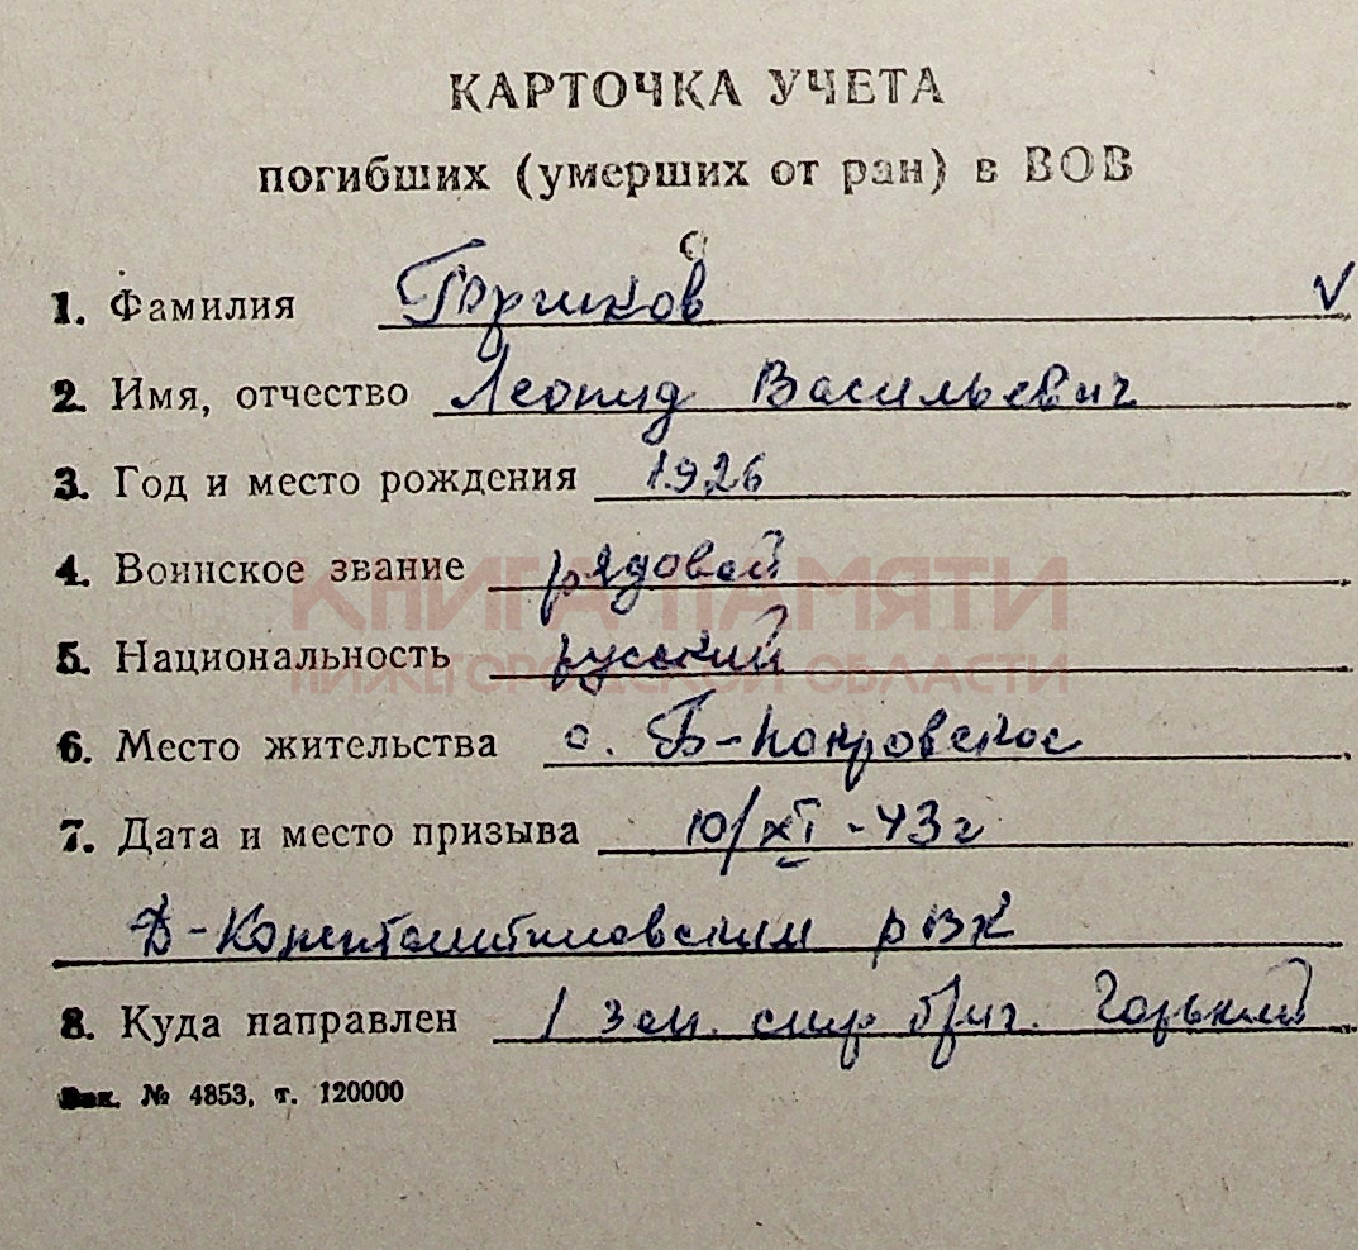 КАРТОЧКА УЧЕТА
погибших (умерших от ран) в ВОВ
1. Фамилия
2. Имя, отчество Леонид Васильевич
3. Год и место рождения 1926
4. Воинское звание рядовой
КНИГА ПАМЯТИ
5. Национальность русский
НИЖЕГОРОДСКОЙ ОБЛАСТИ
6. Место жительства с. Б-Покровское
7. Дата и место призыва 10/XI-43г
Д-Константиновским рвк
8. Куда направлен 1 зап. стр бриг. Горький
Зак. № 4853, т. 120000